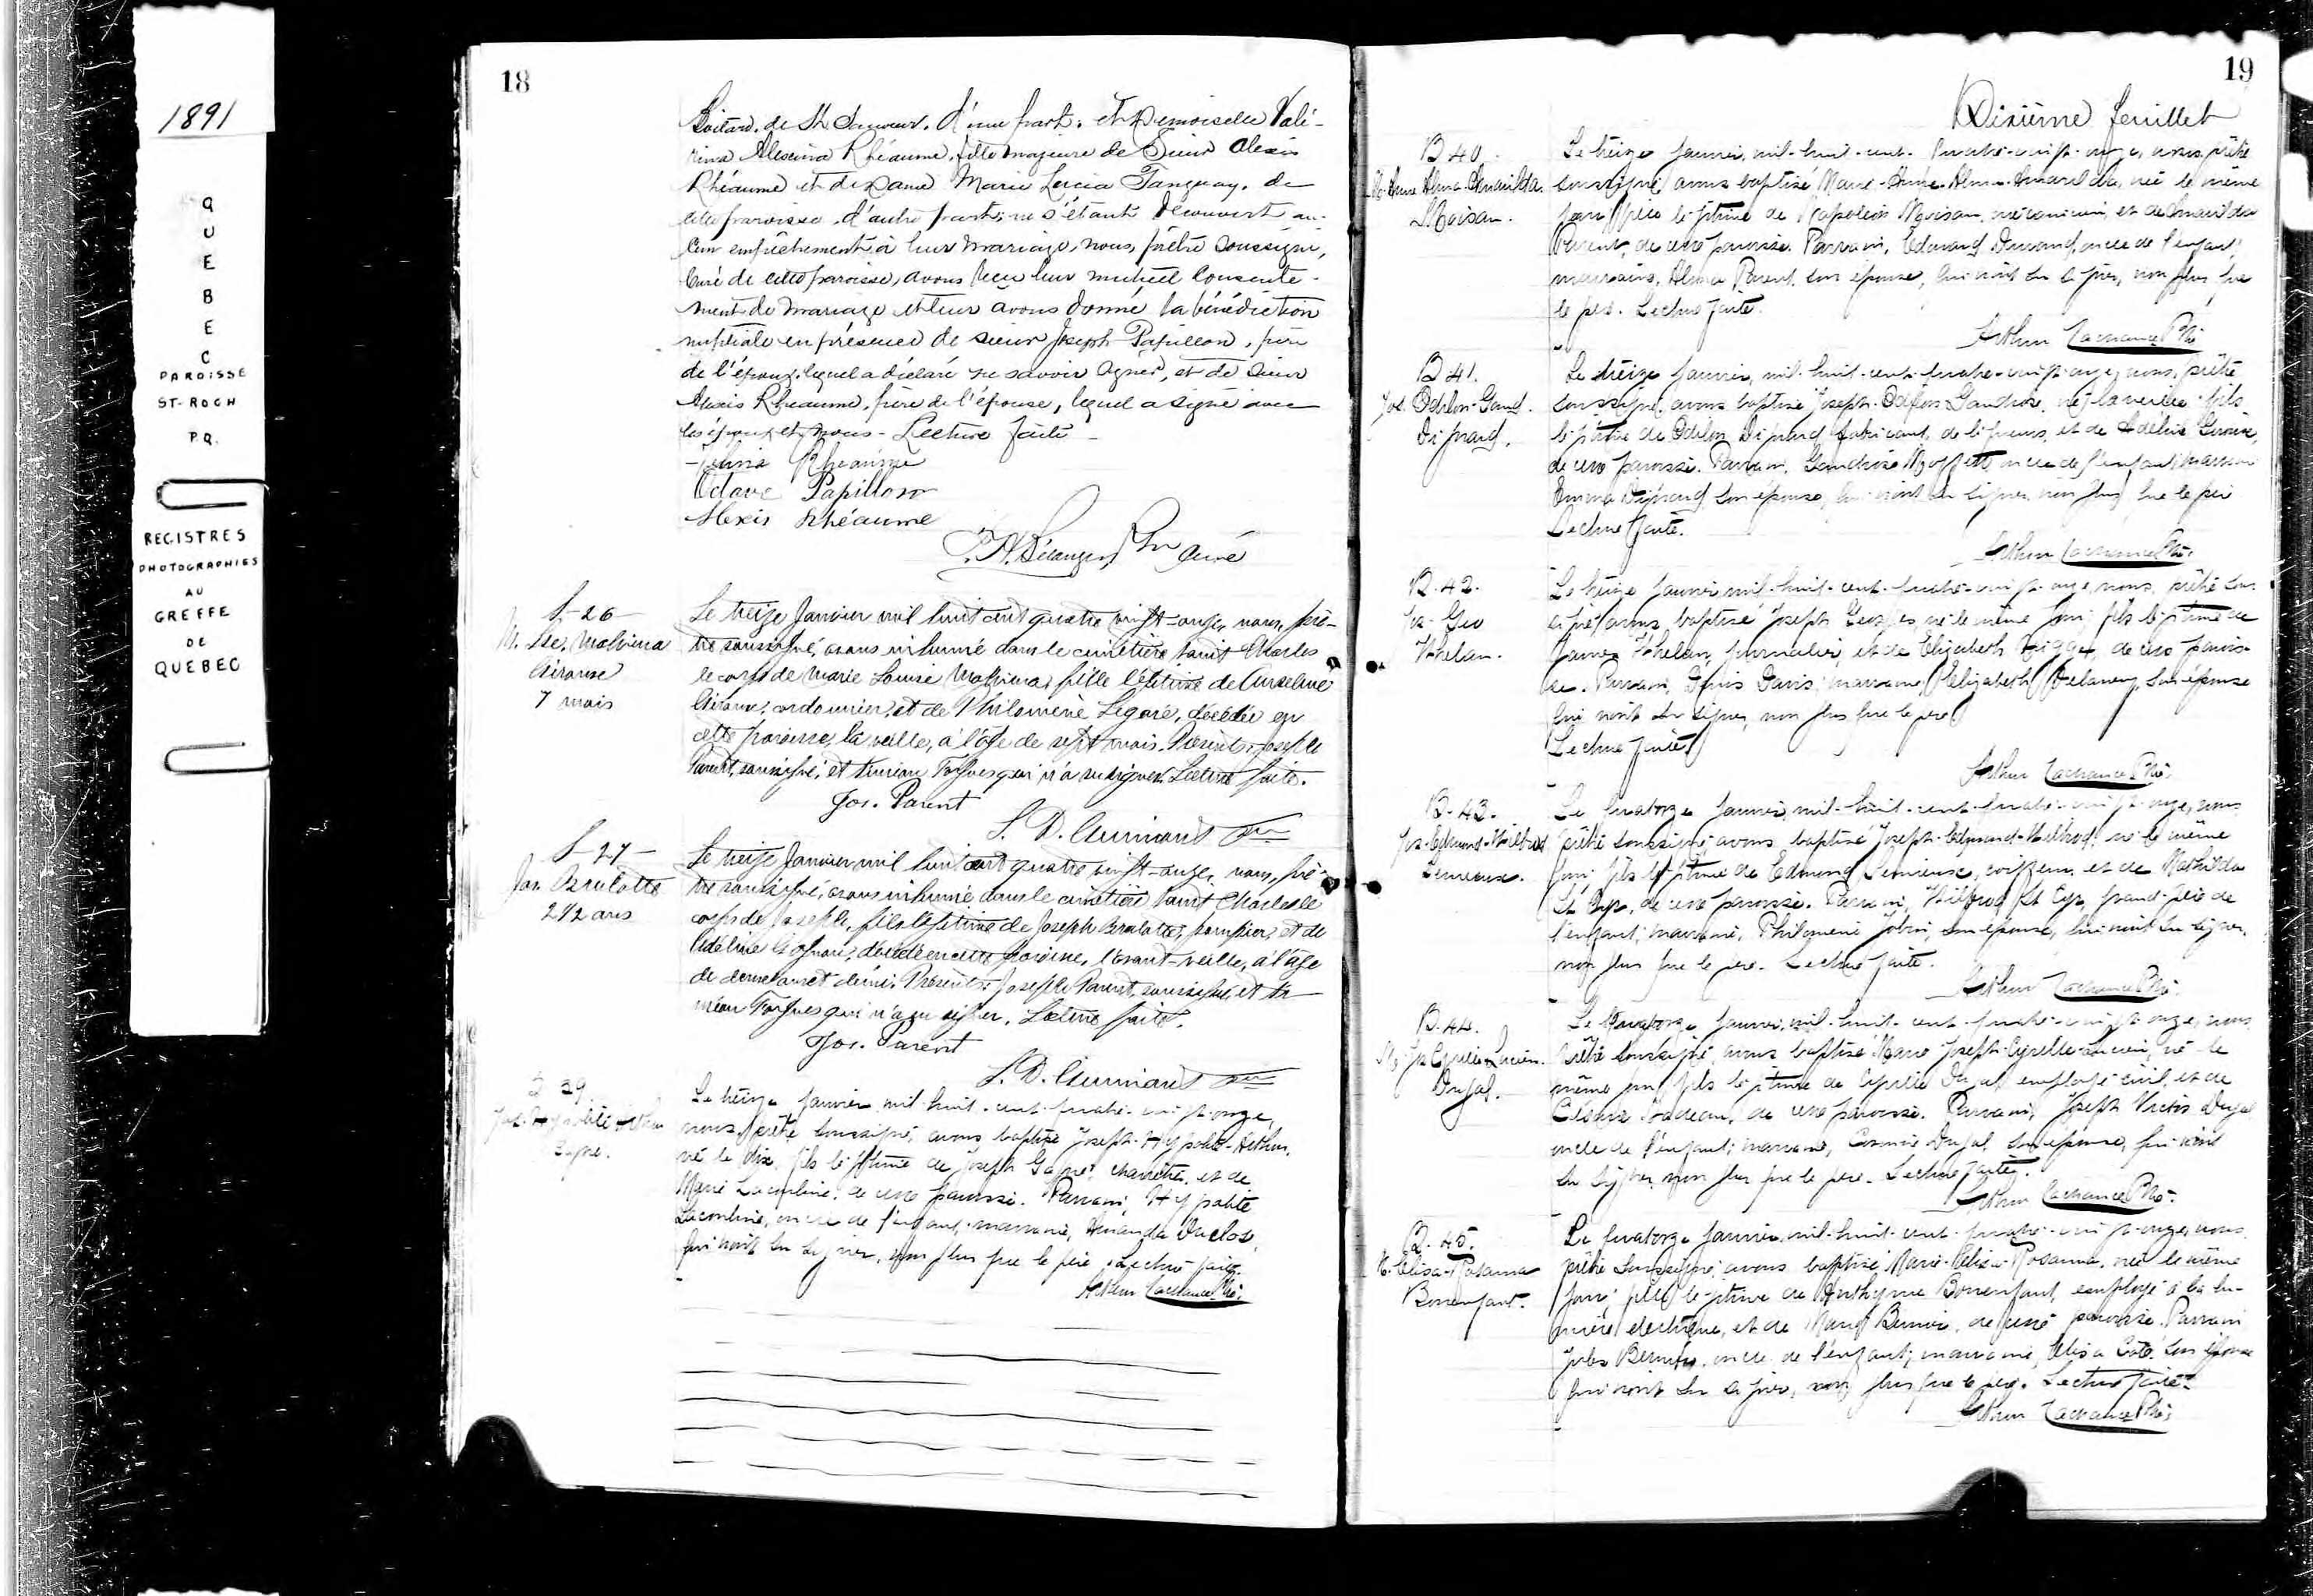 1891
QUEBEC
PAROISSE
ST-ROCH
P.Q.
REGISTRES
PHOTOGRAPHIES
AU
GREFFE
DE
QUEBEC
18
de St Sauveur, d'une part; et Demoiselle Valé-
rina Alexina Rhéaume, fille majeure de Sieur Alexis
Rhéaume et de Dame Marie Tanguay, de
cette paroisse, d'autre part; ne s'étant découvert au-
cun empêchement à leur mariage, nous, prêtre soussigné,
Curé de cette paroisse, avons reçu leur mutuel consente-
ment de mariage et leur avons donné la bénédiction
nuptiale en présence de sieur Joseph Papillon, père
de l'époux, lequel a déclaré ne savoir signer, et de Sieur
Alexis Rhéaume, père de l'épouse, lequel a signé avec
les époux et nous. Lecture faite
Rhéaume
Octave Papillon
Alexis Rhéaume
Bélanger Ptre Curé
S-26
M. Lse Malvina
Giroux
7 mois
Le treize Janvier mil huit cent quatre vingt-onze, nous, prê-
tre soussigné, avons inhumé dans le cimetière Saint Charles
le corps de Marie Louise Malvina, fille légitime de Anselme
Giroux, cordonnier, et de Philomène Légaré, décédée en
cette paroisse, la veille, à l'âge de sept mois. Présents: Joseph
Parent, soussigné, et Forgues qui n'a su signer. Lecture faite.
Jos. Parent
S-27
Jos. Brulotte
2 1/2 ans
Le treize Janvier mil huit cent quatre vingt-onze, nous, prê-
tre soussigné, avons inhumé dans le cimetière Saint Charles le
corps de Joseph, fils légitime de Joseph Brulotte, pompier, et de
Adéline décédé en cette paroisse, l'avant-veille, à l'âge
de deux ans et demi. Présents: Joseph Parent, soussigné, et
Forgues qui n'a su signer. Lecture faite.
Jos. Parent
39
Jos. Hypolite Arthur
Gagné.
Le treize Janvier mil-huit-cent-quatre-vingt-onze,
nous, prêtre soussigné, avons baptisé Joseph-Hypolite-Arthur,
né le dix, fils légitime de Joseph Gagné, charretier, et de
Marie Lacombine, de cette paroisse. Parrain, Hypolite
Lacombine, oncle de l'enfant; marraine, Amanda Duclos,
qui n'ont su signer, non plus que le père. Lecture faite.
Arthur Lachance Ptre
19
Dixième feuillet
B 40.
M. Anne Alma Amarilda
Moisan.
Le treize Janvier, mil-huit-cent-quatre-vingt-onze, nous, prêtre
soussigné, avons baptisé Marie-Anne-Alma-Amarilda, née le même
jour, fille légitime de Napoléon Moisan, mécanicien, et de Amarilda
Parent, de cette paroisse. Parrain, Edouard Durand, oncle de l'enfant;
marraine, Alma Parent, son épouse, qui n'ont su signer, non plus que
le père. Lecture faite.
Arthur Lachance Ptre
B 41.
Jos. Odilon-Gaud.
Le treize Janvier, mil-huit-cent-quatre-vingt-onze, nous, prêtre
soussigné, avons baptisé Joseph-Odilon né la veille, fils
légitime de Odilon fabricant de liqueurs, et de Adélia Giroux,
de cette paroisse. Parrain, Moffett, oncle de l'enfant; marraine
Emma son épouse, qui n'ont su signer, non plus que le père
Lecture faite.
Arthur Lachance Ptre
B-42.
Jos-Geo
Whelan.
Le treize Janvier mil-huit-cent-quatre-vingt-onze, nous, prêtre sous-
signé, avons baptisé Joseph Georges, né le même jour, fils légitime de
James Whelan, journalier, et de Elizabeth de cette parois-
se. Parrain, Denis Davis; marraine, Elizabeth Delaney, son épouse
qui n'ont su signer, non plus que le père
Lecture faite
Arthur Lachance Ptre
B-43.
Jos-Edmond-Wilbrod
Lemieux.
Le quatorze Janvier, mil-huit-cent-quatre-vingt-onze, nous
prêtre soussigné, avons baptisé Joseph-Edmond-Wilbrod, né le même
jour, fils légitime de Edmond Lemieux, coiffeur, et de Mathilda
St Cyr, de cette paroisse. Parrain, Wilbrod St Cyr, grand-père de
l'enfant; marraine, Philomène Jobin, son épouse, qui n'ont su signer,
non plus que le père. Lecture faite.
Arthur Lachance Ptre
B-44.
M. Jos Cyrille Lucien
Dugal.
Le quatorze Janvier, mil-huit-cent-quatre-vingt-onze, nous
prêtre soussigné, avons baptisé Marie Joseph-Cyrille-Lucien, né le
même jour, fils légitime de Cyrille Dugal, employé civil, et de
Nadeau, de cette paroisse. Parrain, Joseph Victor Dugal
oncle de l'enfant; marraine, Dugal son épouse, qui n'ont
su signer, non plus que le père. Lecture faite.
Arthur Lachance Ptre
B-45.
M. Elisa-Rosanna
Bonenfant.
Le quatorze Janvier, mil-huit-cent-quatre-vingt-onze, nous
prêtre soussigné, avons baptisé Marie-Elisa-Rosanna, née le même
jour, fille légitime de Anthyme Bonenfant, employé à la lu-
mière électrique, et de Marie Bernier, de cette paroisse. Parrain
Jules Bernier, oncle de l'enfant; marraine, Elisa Coté, son épouse
qui n'ont su signer, non plus que le père. Lecture faite.
Arthur Lachance Ptre